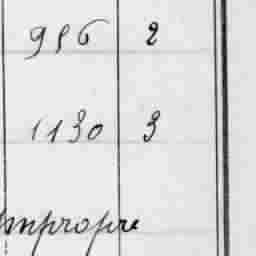 986 2
1130 3
impropre